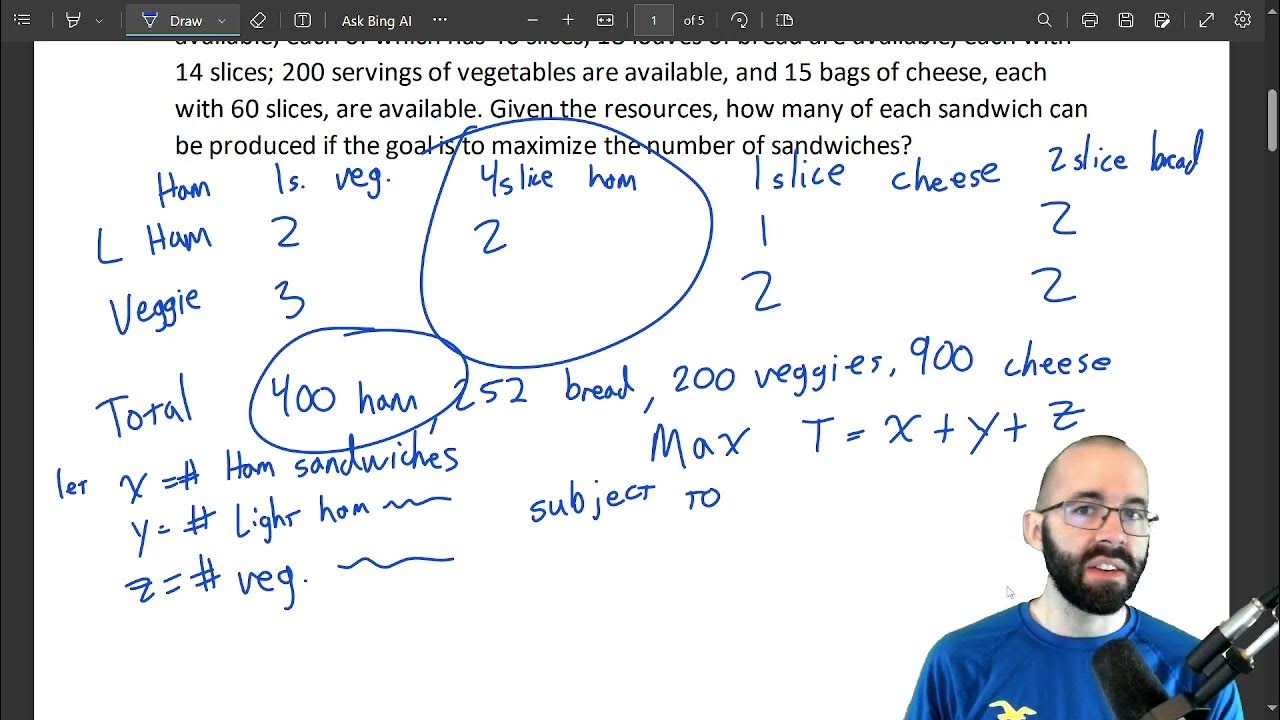 Draw
Ask Bing AI
1 of 5
14 slices; 200 servings of vegetables are available, and 15 bags of cheese, each
with 60 slices, are available. Given the resources, how many of each sandwich can
be produced if the goal is to maximize the number of sandwiches?
Ham 1s. veg. 4slice ham 1slice cheese 2slice bread
L Ham 2 2 1 2
Veggie 3 2 2
Total 400 ham, 252 bread, 200 veggies, 900 cheese
Max T = x + y + z
let x = # Ham sandwiches
subject to
y = # Light ham
z = # veg.